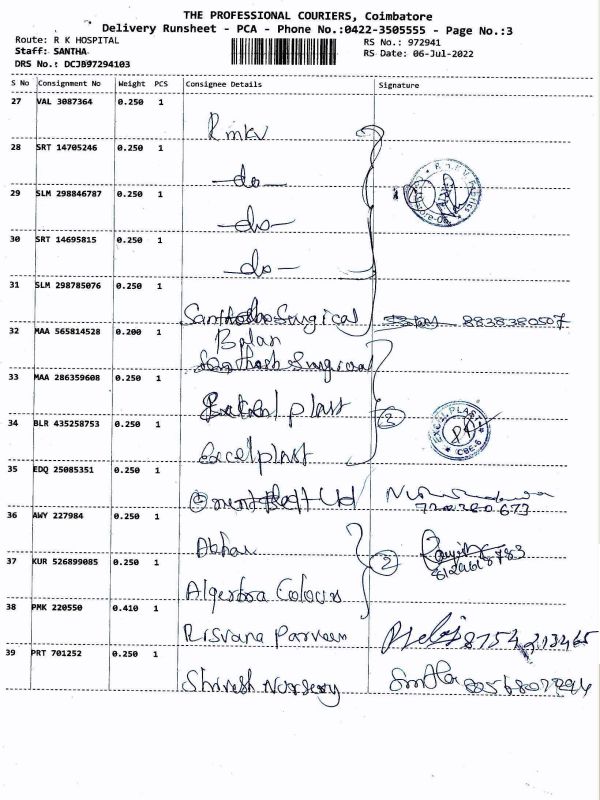 THE PROFESSIONAL COURIERS, Coimbatore
Delivery Runsheet - PCA - Phone No.:0422-3505555 - Page No.:3
Route: R K HOSPITAL RS No.: 972941
Staff: SANTHA RS Date: 06-Jul-2022
DRS No.: DCJB97294103
S No Consignment No Weight PCS Consignee Details Signature
27 VAL 3087364 0.250 1
Rmkv
28 SRT 14705246 0.250 1
-do-
29 SLM 298846787 0.250 1
-do-
30 SRT 14695815 0.250 1
-do-
31 SLM 298785076 0.250 1
Santhosh Surgical 8838380507
32 MAA 565814528 0.200 1
Balan
Santhosh Surgical
33 MAA 286359608 0.250 1
Excel plast 2
34 BLR 435258753 0.250 1
EXCEL PLAST
CBE-6
Excel plast
35 EDQ 25085351 0.250 1
Ltd
36 AWY 227984 0.250 1
37 KUR 526899085 0.250 1
2
Colours
38 PMK 220550 0.410 1
Risvana Parveen
39 PRT 701252 0.250 1
Nursery